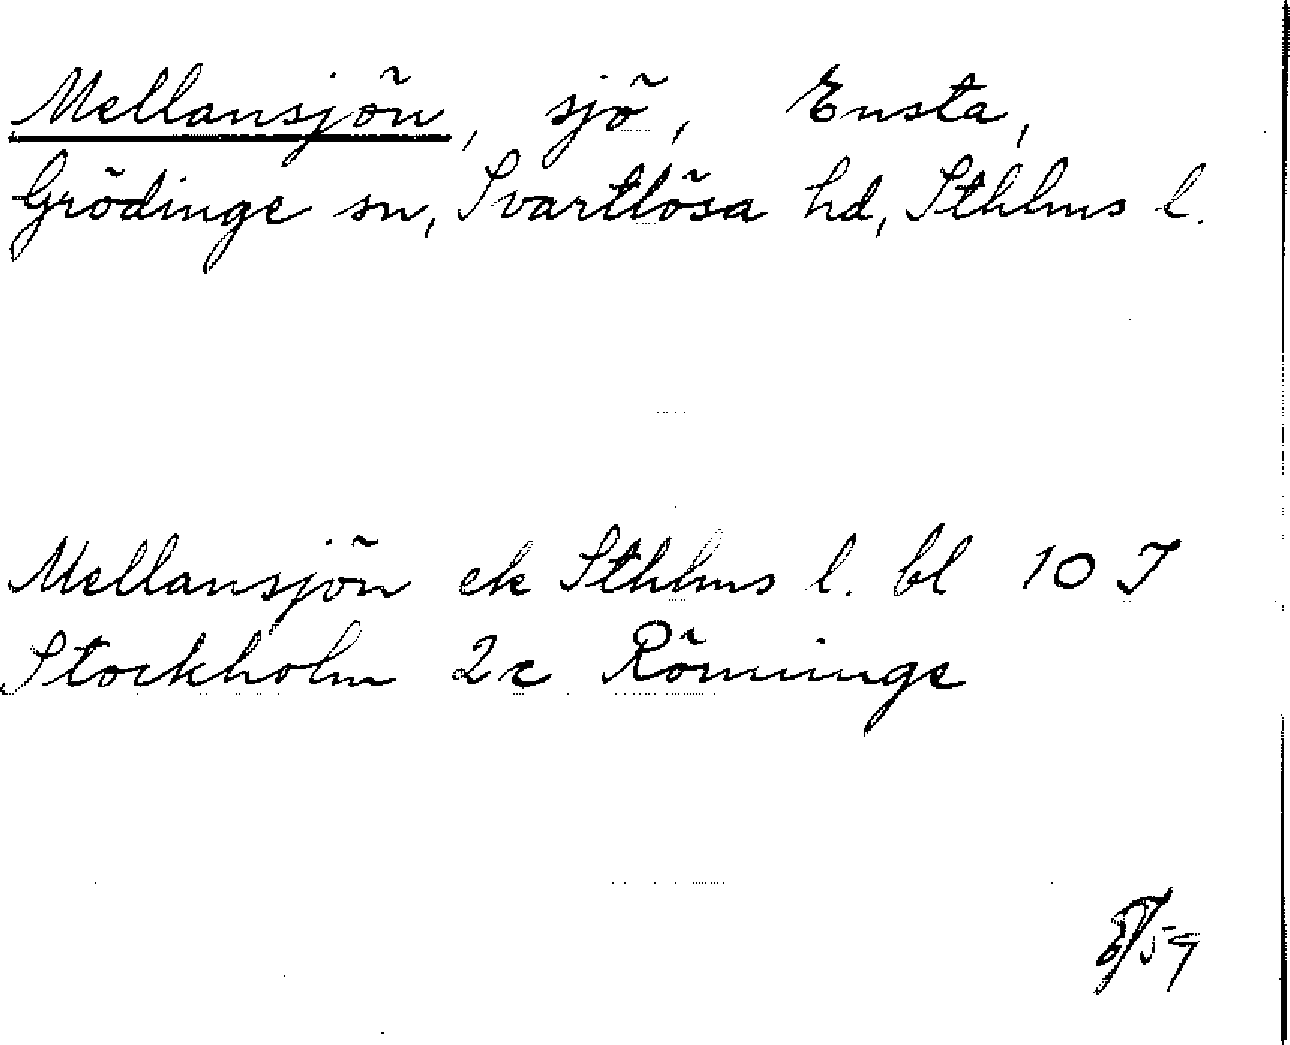 Mellansjön, sjö, Ensta,
Grödinge sn, Svartlösa hd, Sthlms l.
Mellansjön ek Sthlms l. bl 10 I
Stockholm 2c Rönninge